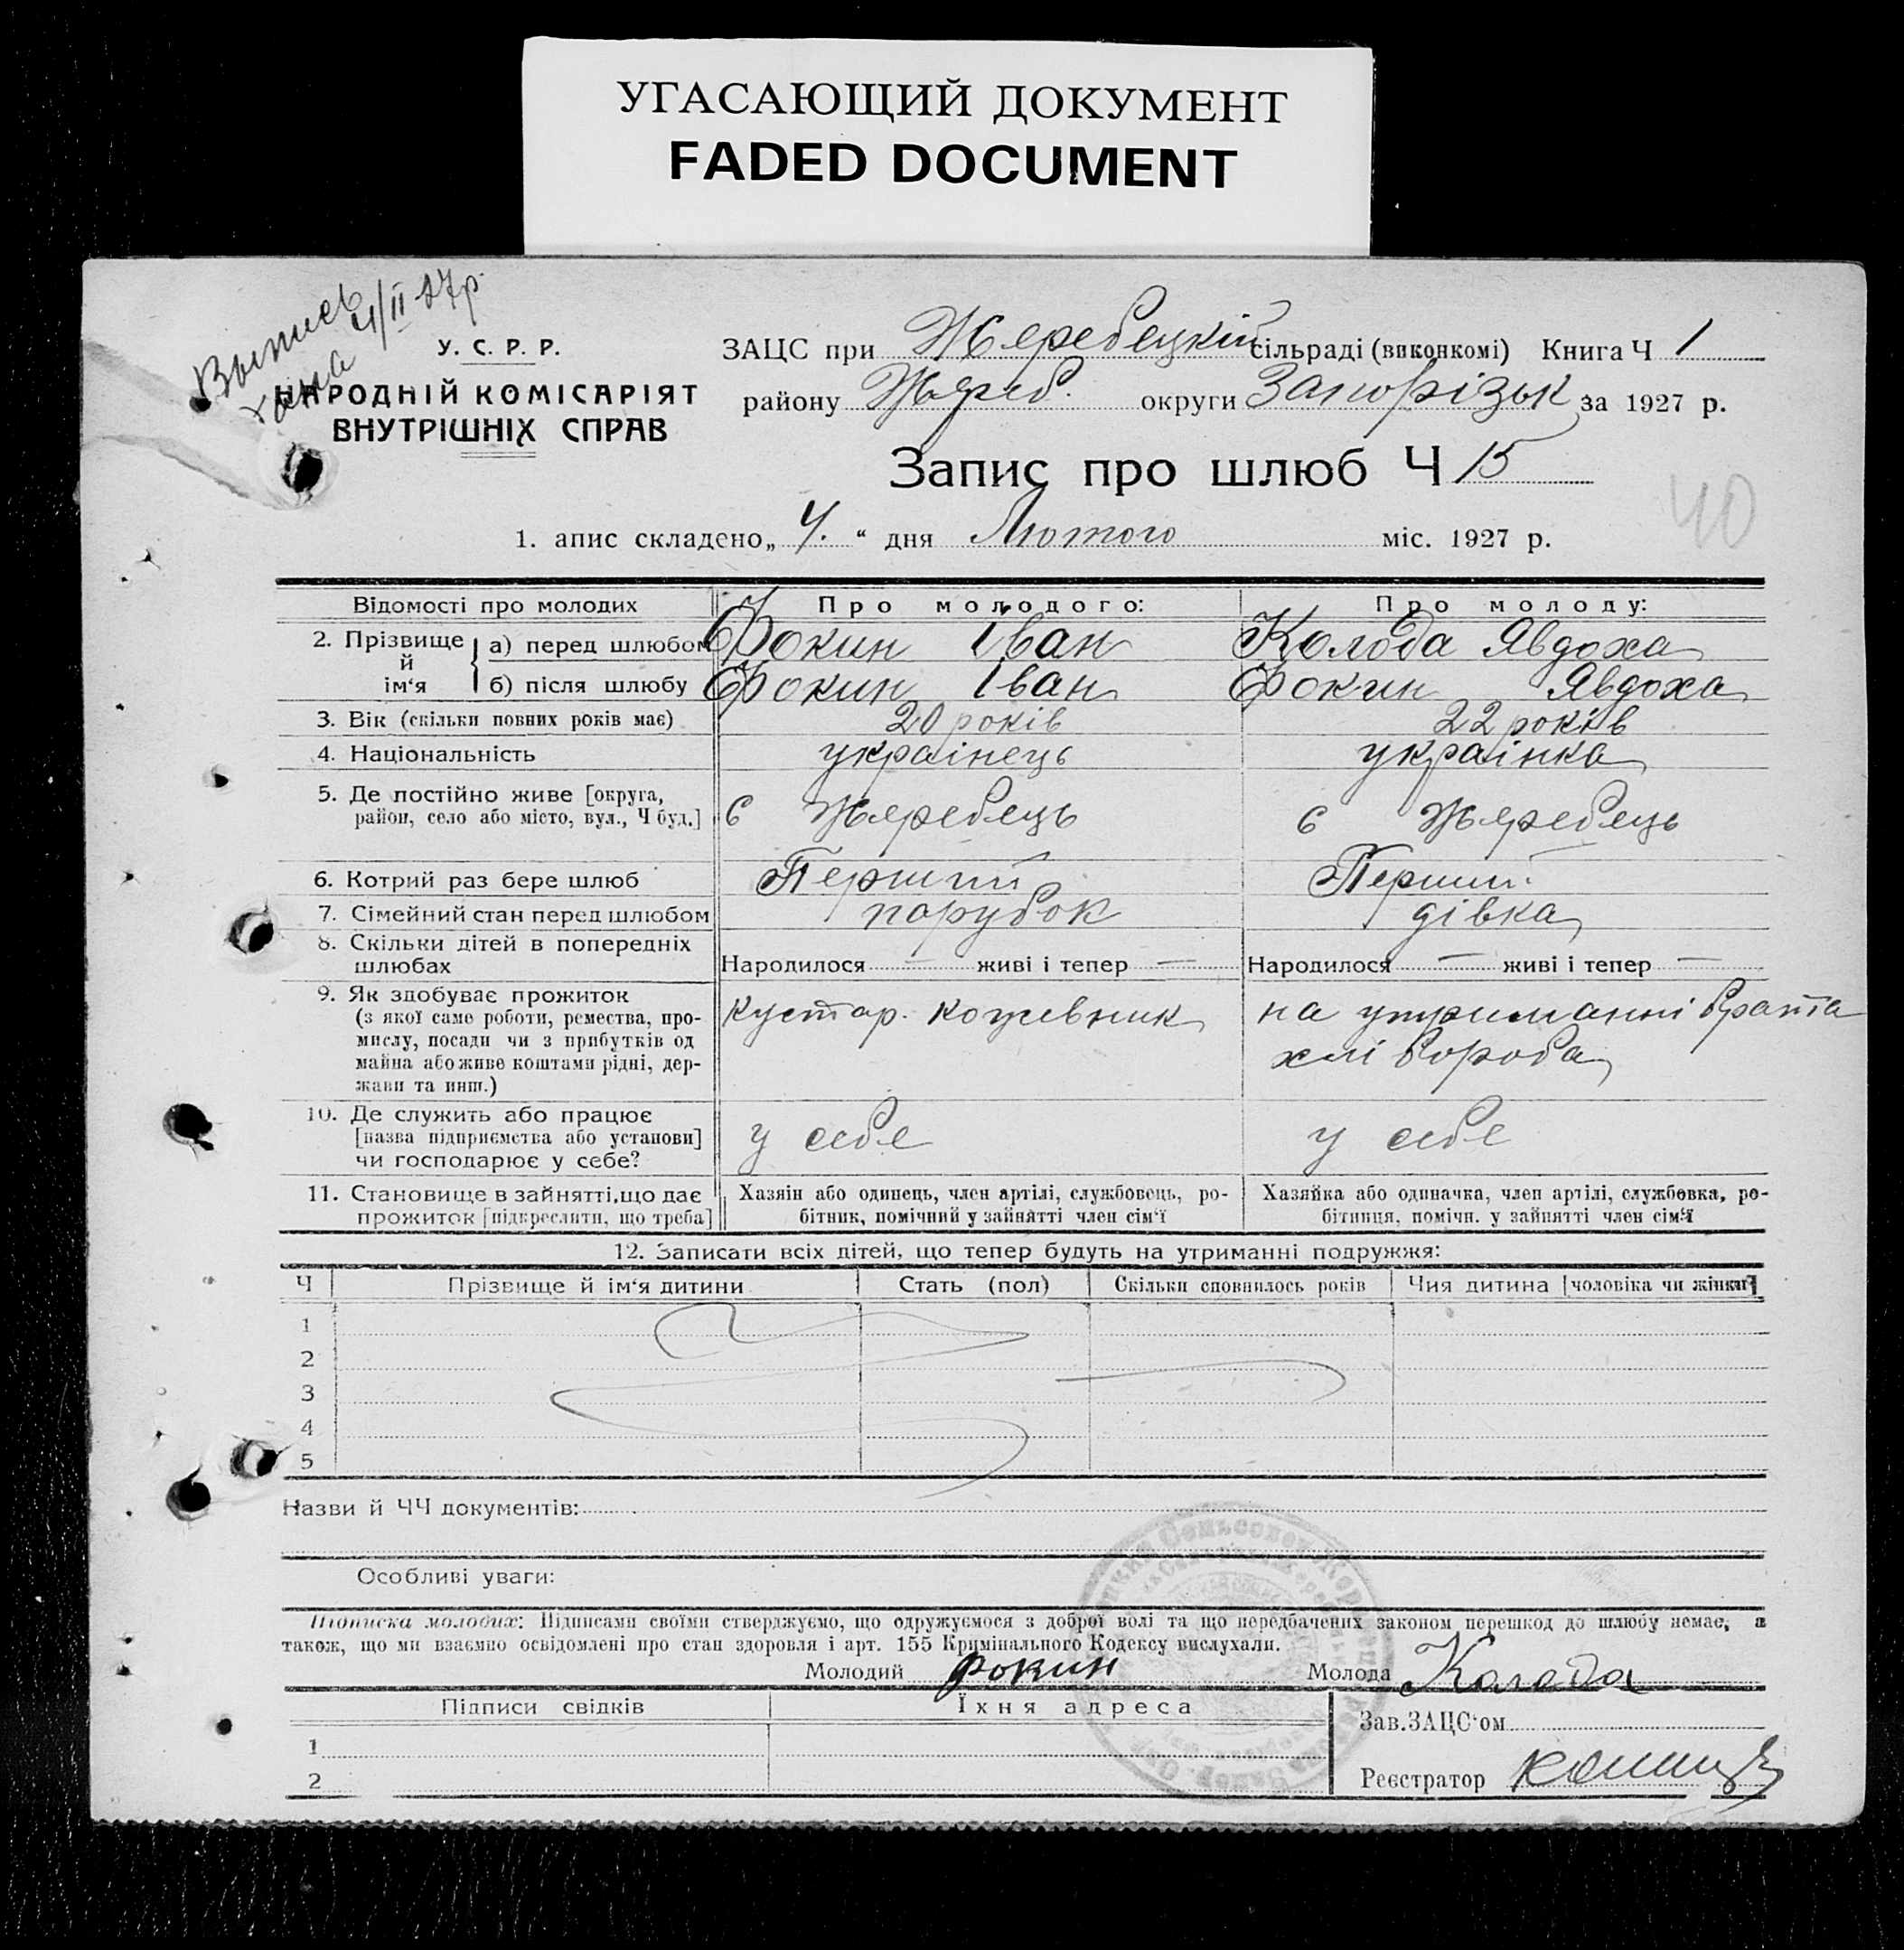 УГАСАЮЩИЙ ДОКУМЕНТ
FADED DOCUMENT
Выпись
4/II 27р.
У. С. Р. Р.
НАРОДНІЙ КОМІСАРІЯТ
ВНУТРІШНІХ СПРАВ
ЗАЦС при Жеребецкій сільраді (виконкомі) Книга Ч 1
району Жереб. округи Запорізьк за 1927 р.
Запис про шлюб Ч 15
40
1. апис складено „4.“ дня Лютого міс. 1927 р.
Відомості про молодих Про молодого: Про молоду:
2. Прізвище й ім‘я а) перед шлюбом Фокин Іван Колода Явдоха
б) після шлюбу Фокин Іван Фокин Явдоха
3. Вік (скільки повних років має) 20 років 22 років
4. Національність українець українка
5. Де постійно живе [округа,
район, село або місто, вул., Ч буд.] с Жеребець с Жеребець
6. Котрий раз бере шлюб Перший Перший
7. Сімейний стан перед шлюбом парубок дівка
8. Скільки дітей в попередніх
шлюбах Народилося — живі і тепер — Народилося — живі і тепер —
9. Як здобуває прожиток
(з якої саме роботи, ремества, про-
мислу, посади чи з прибутків од
майна або живе коштами рідні, дер-
жави та инш.)
Кустар. кожевник
на утриманні брата
хліборова
10. Де служить або працює
[назва підприємства або установи]
чи господарює у себе? у себе у себе
11. Становище в зайнятті, що дає
прожиток [підкреслити, що треба]
Хазяін або одинець, член артілі, службовець, ро-
бітник, помічний у зайнятті член сім‘ї
Хазяйка або одиначка, член артілі, службовка, ро-
бітниця, помічн. у зайнятті член сім‘ї
12. Записати всіх дітей, що тепер будуть на утриманні подружжя:
Ч Прізвище й ім‘я дитини Стать (пол) Скільки сповнилось років Чия дитина [чоловіка чи жінки]
1
2
3
4
5
Назви й ЧЧ документів:
Особливі уваги:
Підписка молодих: Підписами своїми стверджуємо, що одружуємося з доброї волі та що передбачених законом перешкод до шлюбу немає, а
також, що ми взаємно освідомлені про стан здоровля і арт. 155 Кримінального Кодексу вислухали.
Молодий Фокин Молода Колода
Підписи свідків Їхня адреса
Зав.ЗАЦС‘ом
1
2
Реєстратор